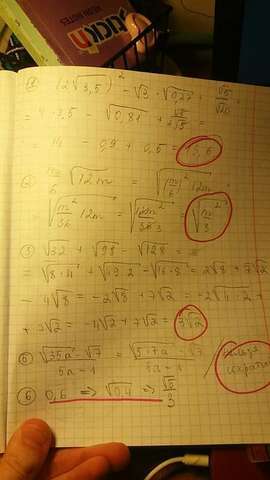 ① (2√3,5)² - √3 · √0,27 + √5/√20 =
= 4 · 3,5 - √0,81 + √5/2√5 =
= 14 - 0,9 + 0,5 = 13,6
② m/6 √12m = √(m/6)² · 12m =
= √m²/36 · 12m = √12m³/36·3 = √m³/3
③ √32 + √98 - √128 =
= √8·4 + √49·2 - √16·8 = 2√8 + 7√2
- 4√8 = -2√8 + 7√2 = -2√4·2 +
+ 7√2 = -4√2 + 7√2 = 3√2
⑤ √35a - √7 / 5a - 1 = √5·7a - √7 / 5a - 1
⑥ 0,6 ⇒ √0,4 ⇒ √5/3